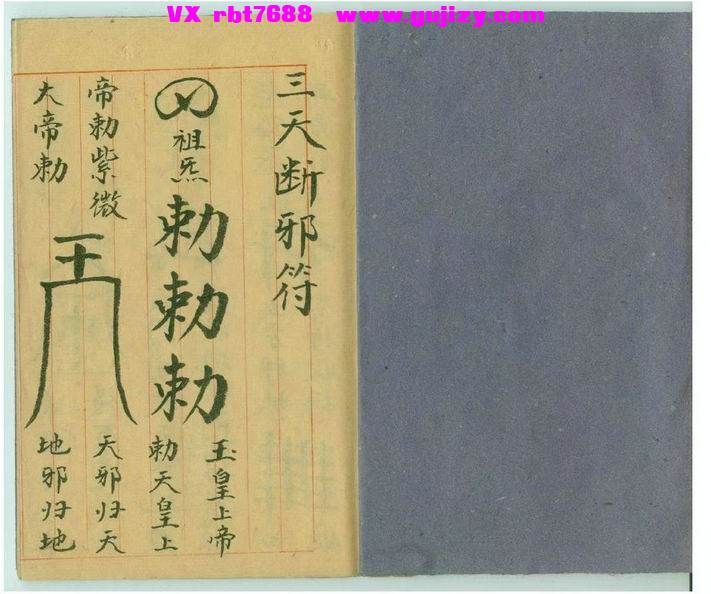 VX rbt7688 www.gujizy.com
三天断邪符
祖炁
勅勅勅
玉皇上帝
勅天皇上
帝勅紫微
大帝勅
天邪归天
地邪归地